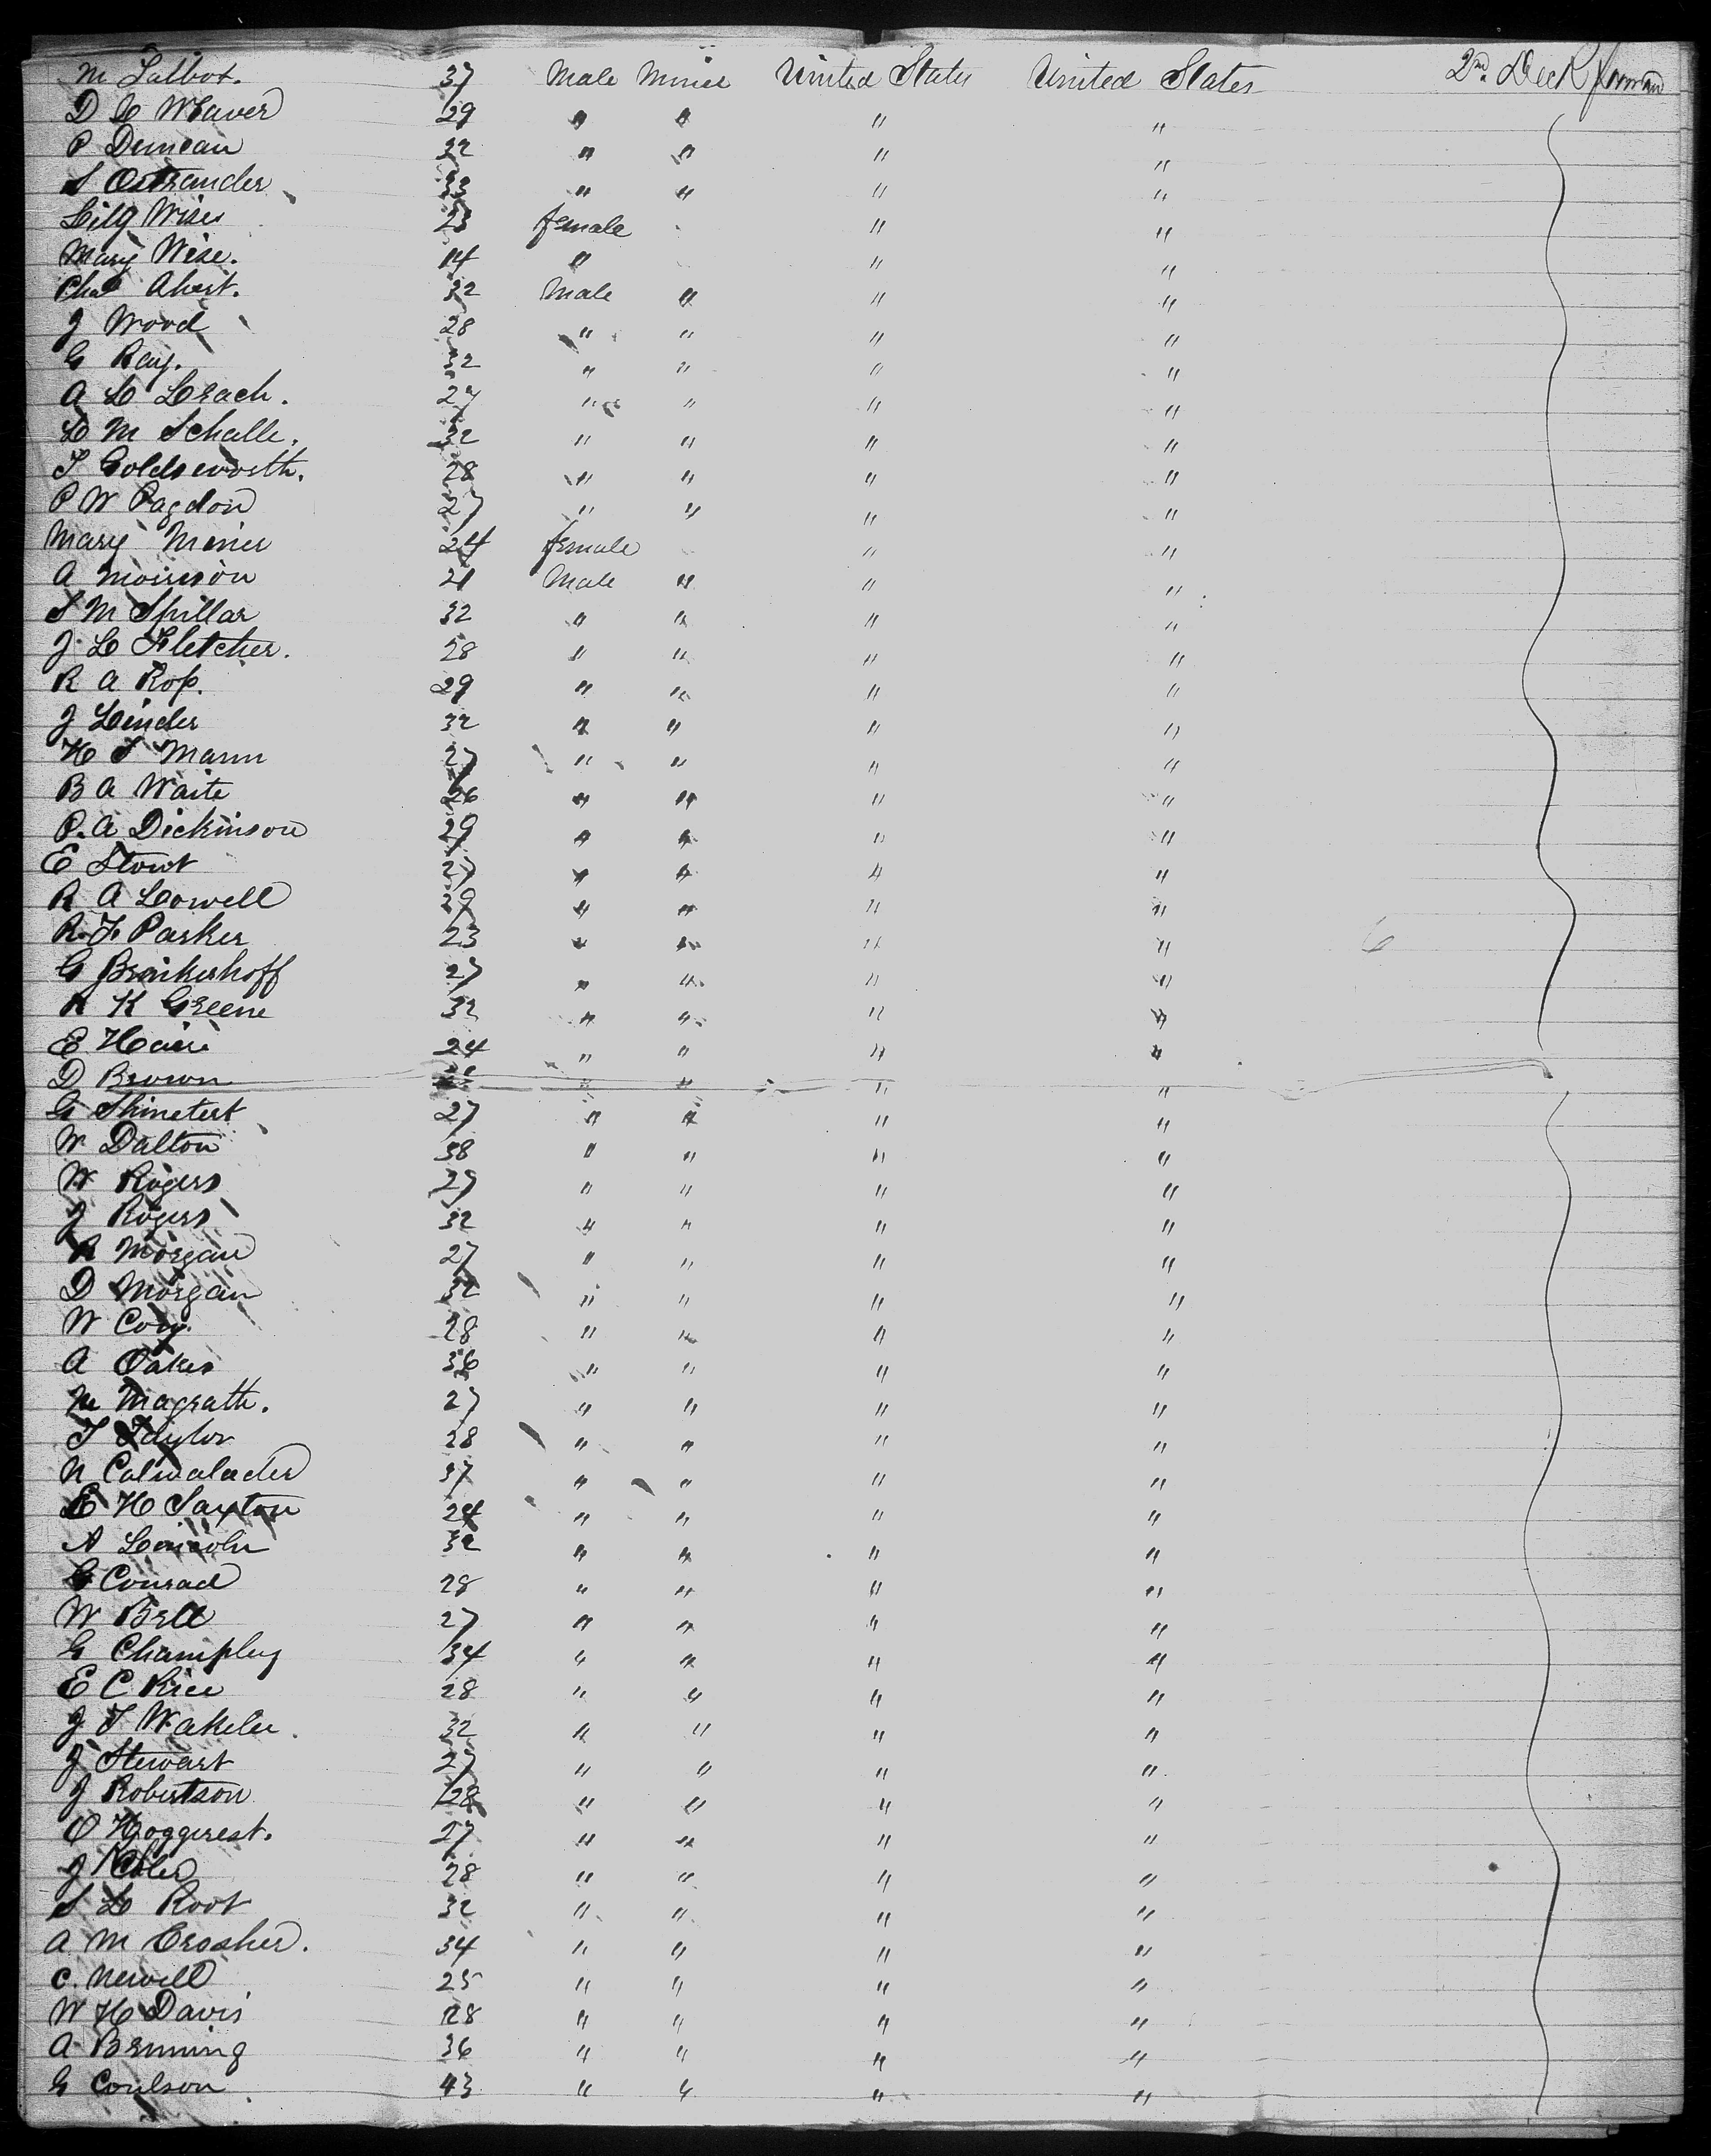 M Talbot. 37 Male Miner United States United States 2nd Deck forward
D C Weaver 29 " " " "
P Duncan 22 " " " "
S Ostrander 33 " " " "
Wise 23 female " "
Mary Wise. 14 " " "
Chas 32 Male " " "
J Wood 28 " " " "
G Ray. 32 " " " "
A L Leach. 27 " " " "
L M Schalle. 32 " " " "
T Goldsworth. 28 " " " "
P W Pagdon 27 " " " "
Mary Miner 24 female " "
A Morrison 21 Male " " "
S M Spillar 32 " " " "
J L Fletcher. 28 " " " "
R A Ross. 29 " " " "
J Linder 32 " " " "
H T Mann 27 " " " "
B A Waite 26 " " " "
P. A Dickinson 29 " " " "
E Stout 27 " " " "
R A Lowell 39 " " " "
R. F. Parker 23 " " " " 6
G Brinkerhoff 27 " " " "
R K Greene 32 " " " "
E 24 " " " "
D Brown " " " "
G 27 " " " "
W Dalton 38 " " " "
W Rogers 27 " " " "
J Rogers 32 " " " "
R Morgan 27 " " " "
D Morgan 32 " " " "
W Cory. 28 " " " "
A Oakes 36 " " " "
M Magrath. 27 " " " "
T Taylor 28 " " " "
N Calwalader 37 " " " "
E H Saxton 24 " " " "
A Lincoln 32 " " " "
G Conrad 28 " " " "
W Bell 27 " " " "
G Champley 34 " " " "
E C Rice 28 " " " "
J T Wakelee 32 " " " "
J Stewart 27 " " " "
J Robertson 28 " " " "
O Hoggerest. 27 " " " "
J Coles 28 " " " "
S L Root 32 " " " "
A M Crosher. 34 " " " "
C. Newell 25 " " " "
W H Davis 28 " " " "
A Benning 36 " " " "
G Coulson 43 " " " "